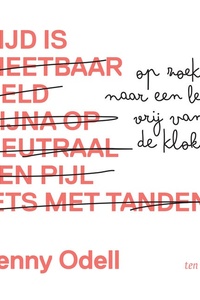 IJD IS
MEETBAAR
ELD
IJNA OP
EUTRAAL
EN PIJL
ETS MET TANDEN
op zoek
naar een le
vrij van
de klok
enny Odell
ten